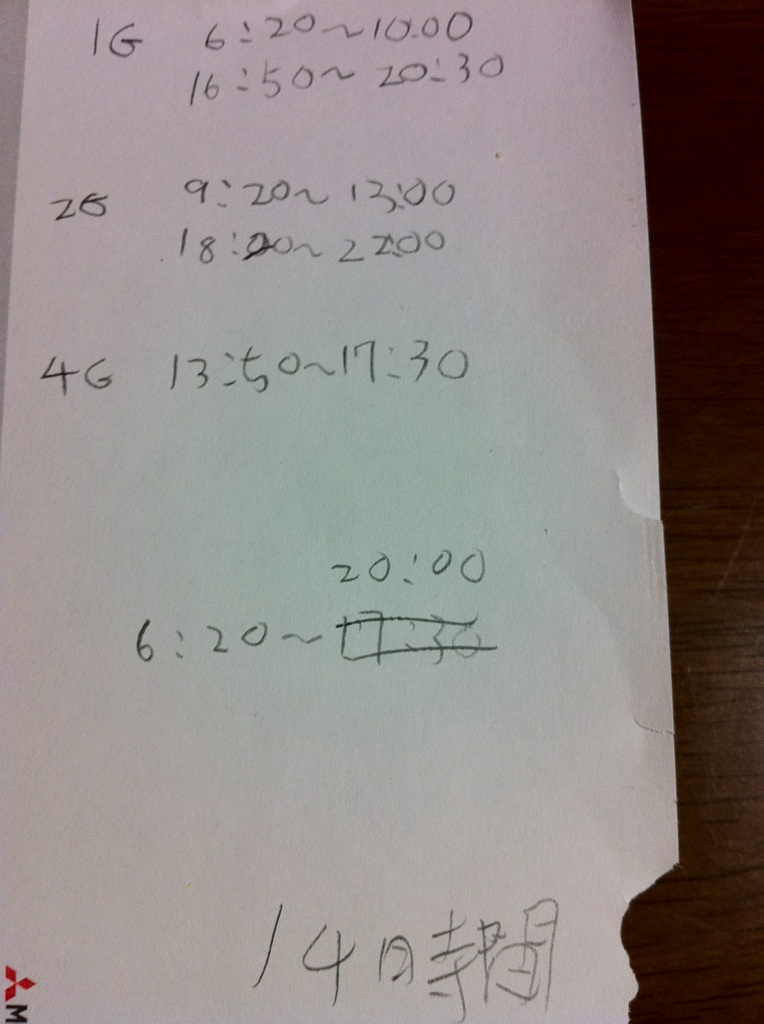 1G 6:20~10:00
16:50~20:30
2G 9:20~13:00
18:20~22:00
4G 13:50~17:30
20:00
6:20~17:30
14時間
M